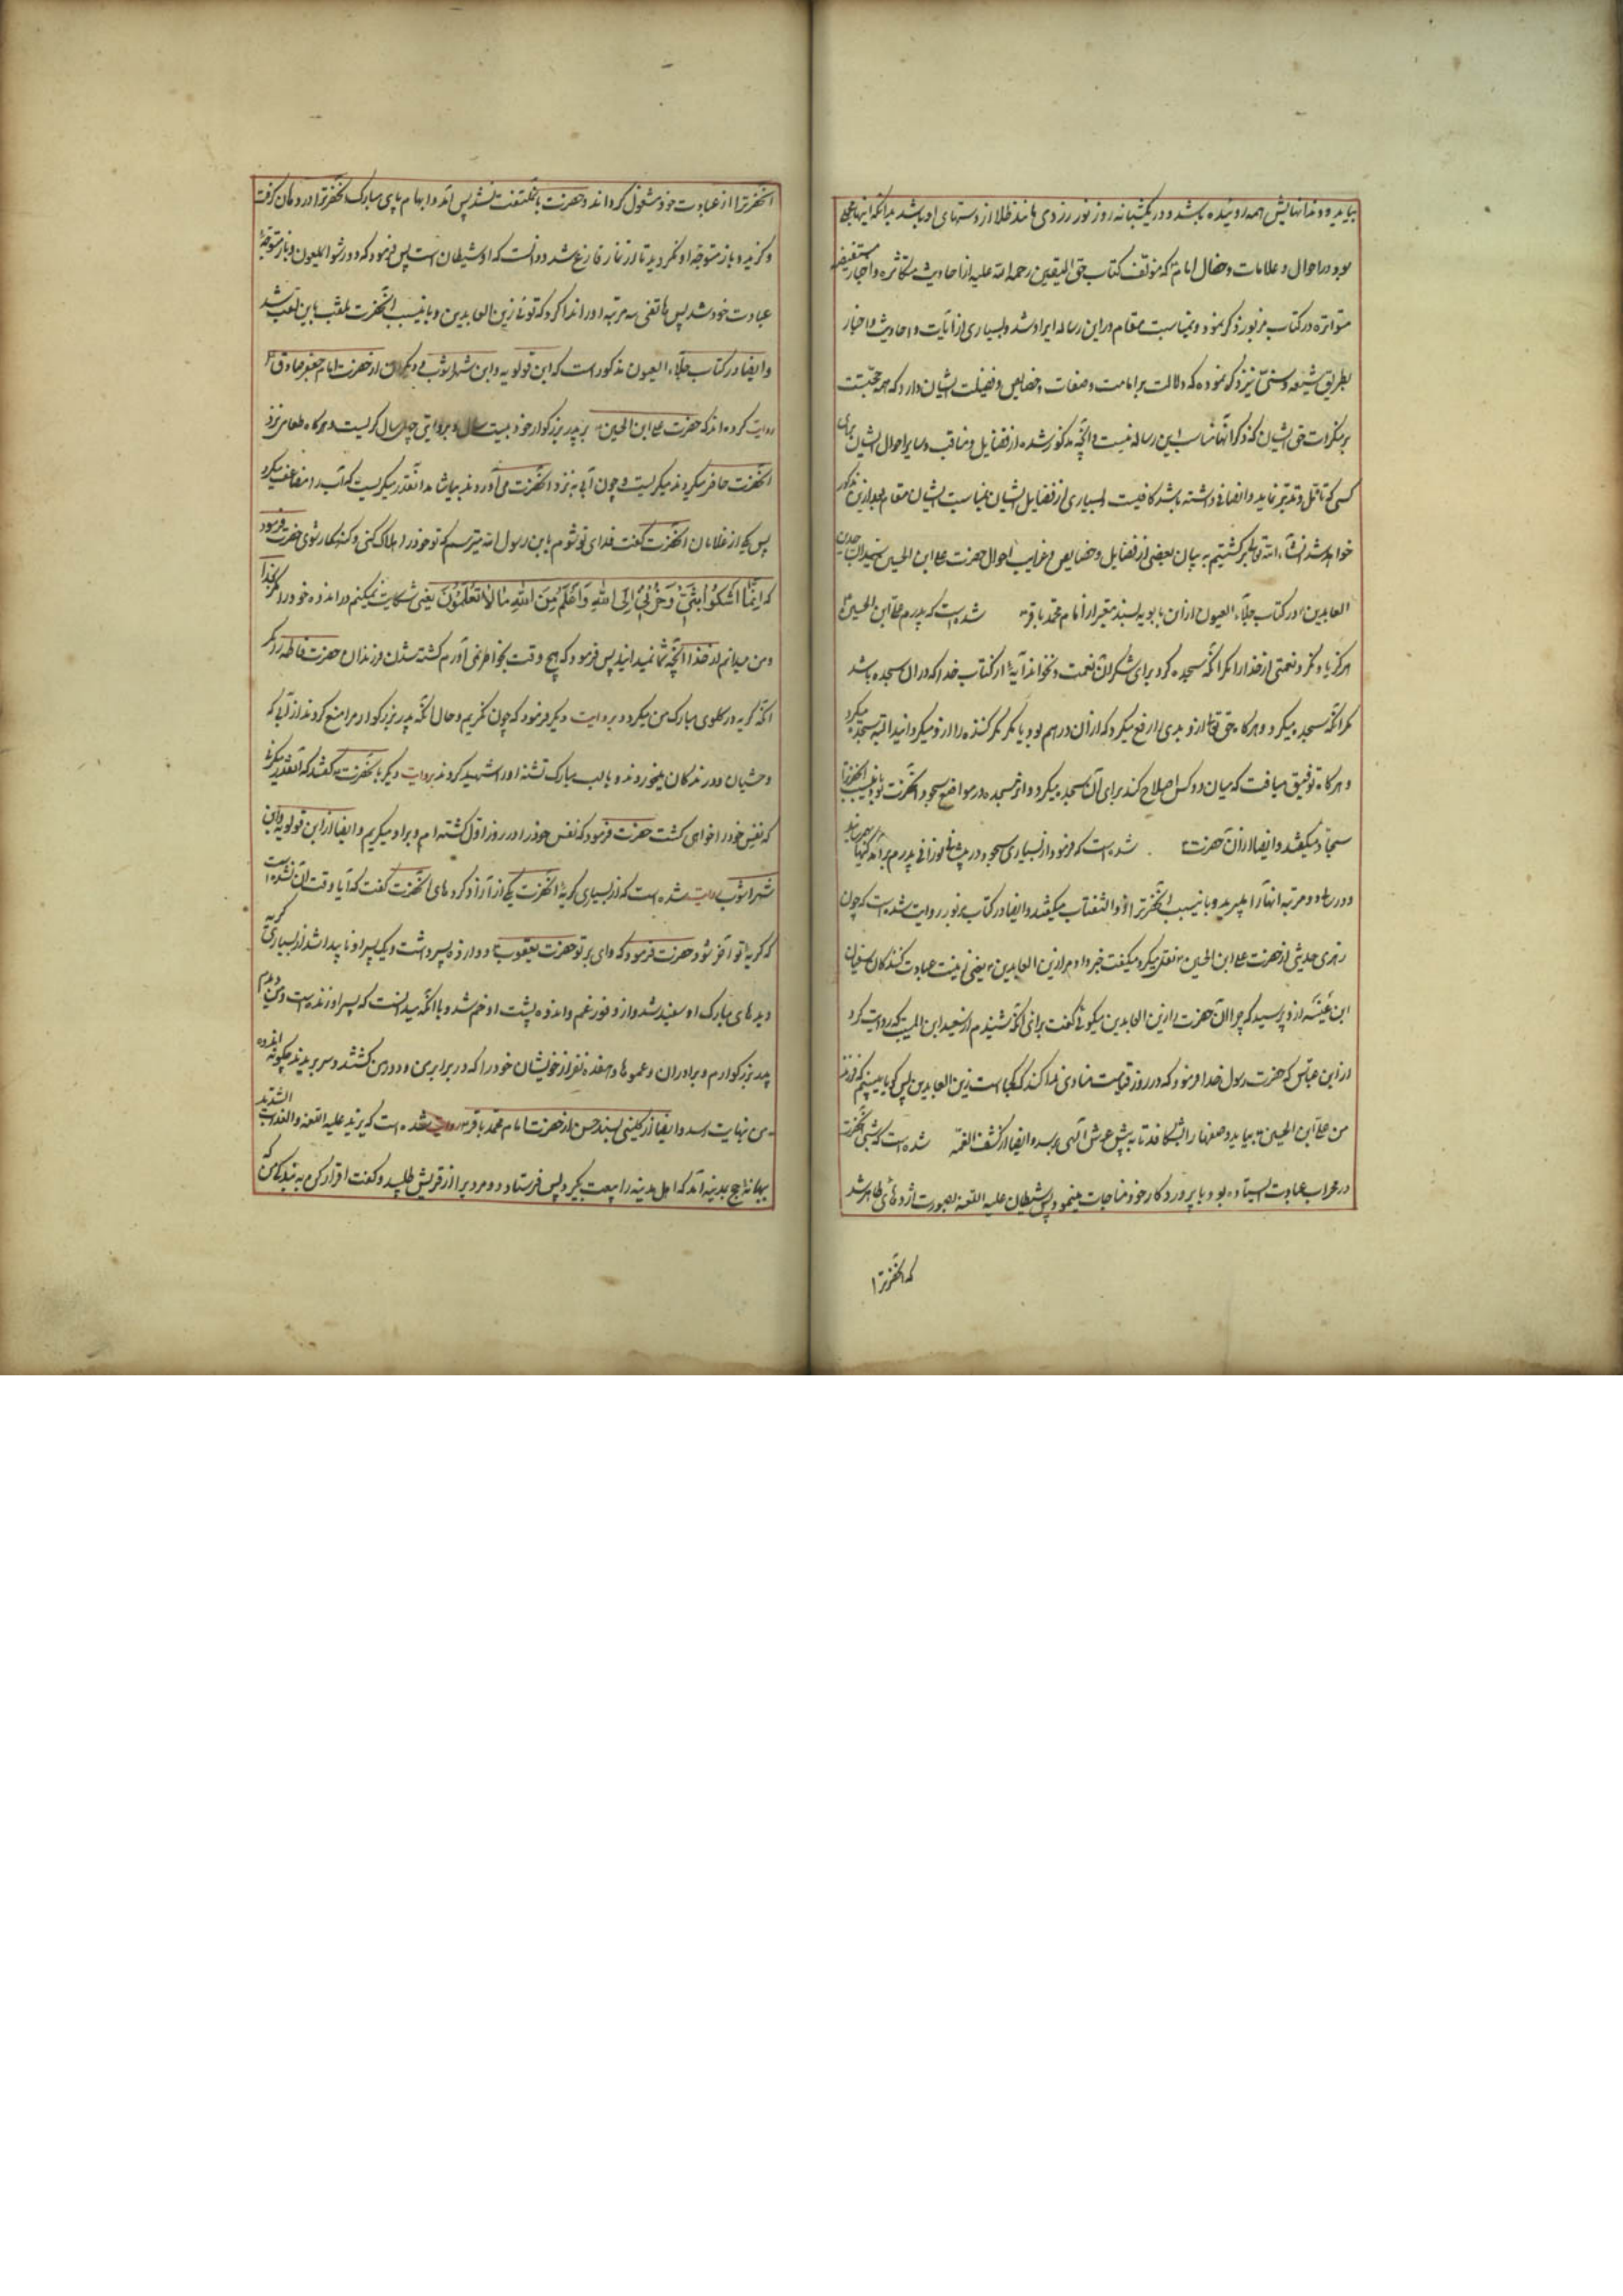 بیاید و دندانهایش همه روئیده باشد و در یکشبانه روز نور زردی مانند طلا از دستهای او باشد بدانکه اینها مجملی
بود در احوال و علامات و خصال امام که مؤلف کتاب حق الیقین رحمه الله علیه از احادیث متکاثره و اخبار مستفیضه
متواتره در کتاب مزبور ذکر نموده و بمناسبت مقام در این رساله ایراد شد و بسیاری از آیات و احادیث و اخبار
بطریق شیعه و سنی نیز ذکر نموده که دلالت بر امامت و صفات و خصایص و فضیلت ایشان دارد که همه حجتست
بر منکرات حق ایشان که ذکر آنها مناسب این رساله نیست و آنچه مذکور شده از فضایل و مناقب و سایر احوال ایشان برای
کسی که تأمل و تدبر نماید و انصافی داشته باشد کافیست و بسیاری از فضایل ایشان بمناسبت ایشان مقام بعد ازین مذکور
خواهد شد انشاء الله تعالی برگشتیم به بیان بعضی از فضایل و خصایص و غرایب احوال حضرت علی ابن الحسین سید الساجدین
العابدین در کتاب جلاء العیون از ابن بابویه بسند معتبر از امام محمد باقر ع شده است که پدرم علی ابن الحسین ع
هرگز یاد نکرد نعمتی از خدا را مگر آنکه سجده کرد برای شکر آن نعمت و نخواند آیهٔ از کتاب خدا که در ان سجده باشد
مگر آنکه سجده میکرد و هرگاه حق تعالی از و بدی را رفع میکرد که از آن در هم بود یا مکر مکر کننده را از و میگردانید البته سجده میکرد
و هرگاه توفیق میافت که میان دو کس اصلاح کند برای آن سجده میکرد و اثر سجده در مواضع سجود آنحضرت بود باینسبب آنحضرترا
سجاد میگفتند و ایضا از آن حضرت ع شده است که فرمود از بسیاری سجود در پیشانی نورانی پدرم بر آمدگیها بهم میرسید
و در سالی دو مرتبه آنها را میبرید و باینسبب آنحضرترا ذو الثفنات میگفتند و ایضا در کتاب مزبور روایت شده است که چون
زهری حدیثی از حضرت علی ابن الحسین ع نقل میکرد میگفت خبر داد مرا زین العابدین ع یعنی زینت عبادت کنندگان سفیان
ابن عیینه از و پرسید که چرا آن حضرت را زین العابدین میگوئی گفت برای آنکه شنیدم از سعید ابن المسیب که روایت کرد
از ابن عباس که حضرت رسول خدا فرمود که در روز قیامت منادی ندا کند که کجاست زین العابدین پس گویا میبینم که فرزند
من علی ابن الحسین ع بیاید و صفها را بشکافد تا به پیش عرش الهی برسد و ایضا از کشف الغمه شده است که شبی آنحضرت
در محراب عبادت ایستاده بود و با پروردگار خود مناجات مینمود پس شیطان علیه اللعنه بصورت اژدهائی ظاهر شد
که آنحضرترا
آنحضرترا از عبادت خود مشغول گرداند و حضرت باو ملتفت نشد پس آمد و ابهام پای مبارک آنحضرترا در دهان گرفت
و گزید و باز متوجه او نگردید تا از نماز فارغ شد و دانست که او شیطان است پس فرمود که دور شو ای ملعون و باز متوجه
عبادت خود شد پس هاتفی سه مرتبه او را ندا کرد که توئی زین العابدین و باینسبب آنحضرت ملقب باین لقب شد
و ایضا در کتاب جلاء العیون مذکور است که ابن قولویه و ابن شهراشوب و دیگران از حضرت امام جعفر صادق ع
روایت کرده اند که حضرت علی ابن الحسین بر پدر بزرگوار خود بیست سال و بروایتی چهل سال گریست و هرگاه طعامی نزد
آنحضرت حاضر میکردند میگریست و چون آبی به نزد آنحضرت می آوردند بیاشامد آنقدر میگریست که آب را مضاعف میکرد
پس یکی از غلامان آنحضرت گفت فدای تو شوم یا بن رسول الله میترسم که تو خود را هلاک کنی و گنه کار شوی حضرت فرمود
که اِنَّما اَشکُوا بَثّی وَ حُزنی اِلَی اللهِ وَ اَعلَمُ مِنَ اللهِ ما لا تَعلَمُونَ یعنی شکایت نمیکنم در اندوه خود را مگر بخدا
و من میدانم از خدا آنچه شما نمیدانید پس فرمود که هیچ وقت بخاطر نمی آورم کشته شدن فرزندان حضرت فاطمه را مگر
آنکه گریه در گلوی مبارک من میگیرد و بروایت دیگر فرمود که چون نگریم و حال آنکه پدر بزرگوار مرا منع کردند از آبی که
وحشیان و درندگان میخوردند و با لب مبارک تشنه او را شهید کردند بروایت دیگر با آنحضرت گفتند که آنقدر میگریی
که نفس خود را خواهی کشت حضرت فرمود که نفس خود را در روز اول کشته ام و بر او میگریم و ایضا از ابن قولویه و ابن
شهراشوب روایت شده است که از بسیاری گریهٔ آنحضرت یکی از آزاد کرد های آنحضرت گفت که آیا وقت آن نشده است
که گریه تو آخر شود حضرت فرمود که وای بر تو حضرت یعقوب دوازده پسر داشت و یک پسر او ناپیدا شد از بسیاری گریه
دیدهای مبارک او سفید شد و از وفور غم و اندوه پشت او خم شد و با آنکه میدانست که پسر او زنده است و من دیدم
پدر بزرگوارم و برادران و عموها و هفده نفر از خویشان خود را که در برابر من و دور من کشتند و سر بریدند چگونه اندوه
من نهایت رسد و ایضا از کلینی بسند حسن از حضرت امام محمد باقر ع روایت شده است که یزید علیه اللعنه و العذاب الشدید
بهانهٔ حج بمدینه آمد که اهل مدینه را بیعت بگیرد پس فرستاد و مردیرا از قریش طلبید و گفت اقرار کن که به بندگی من